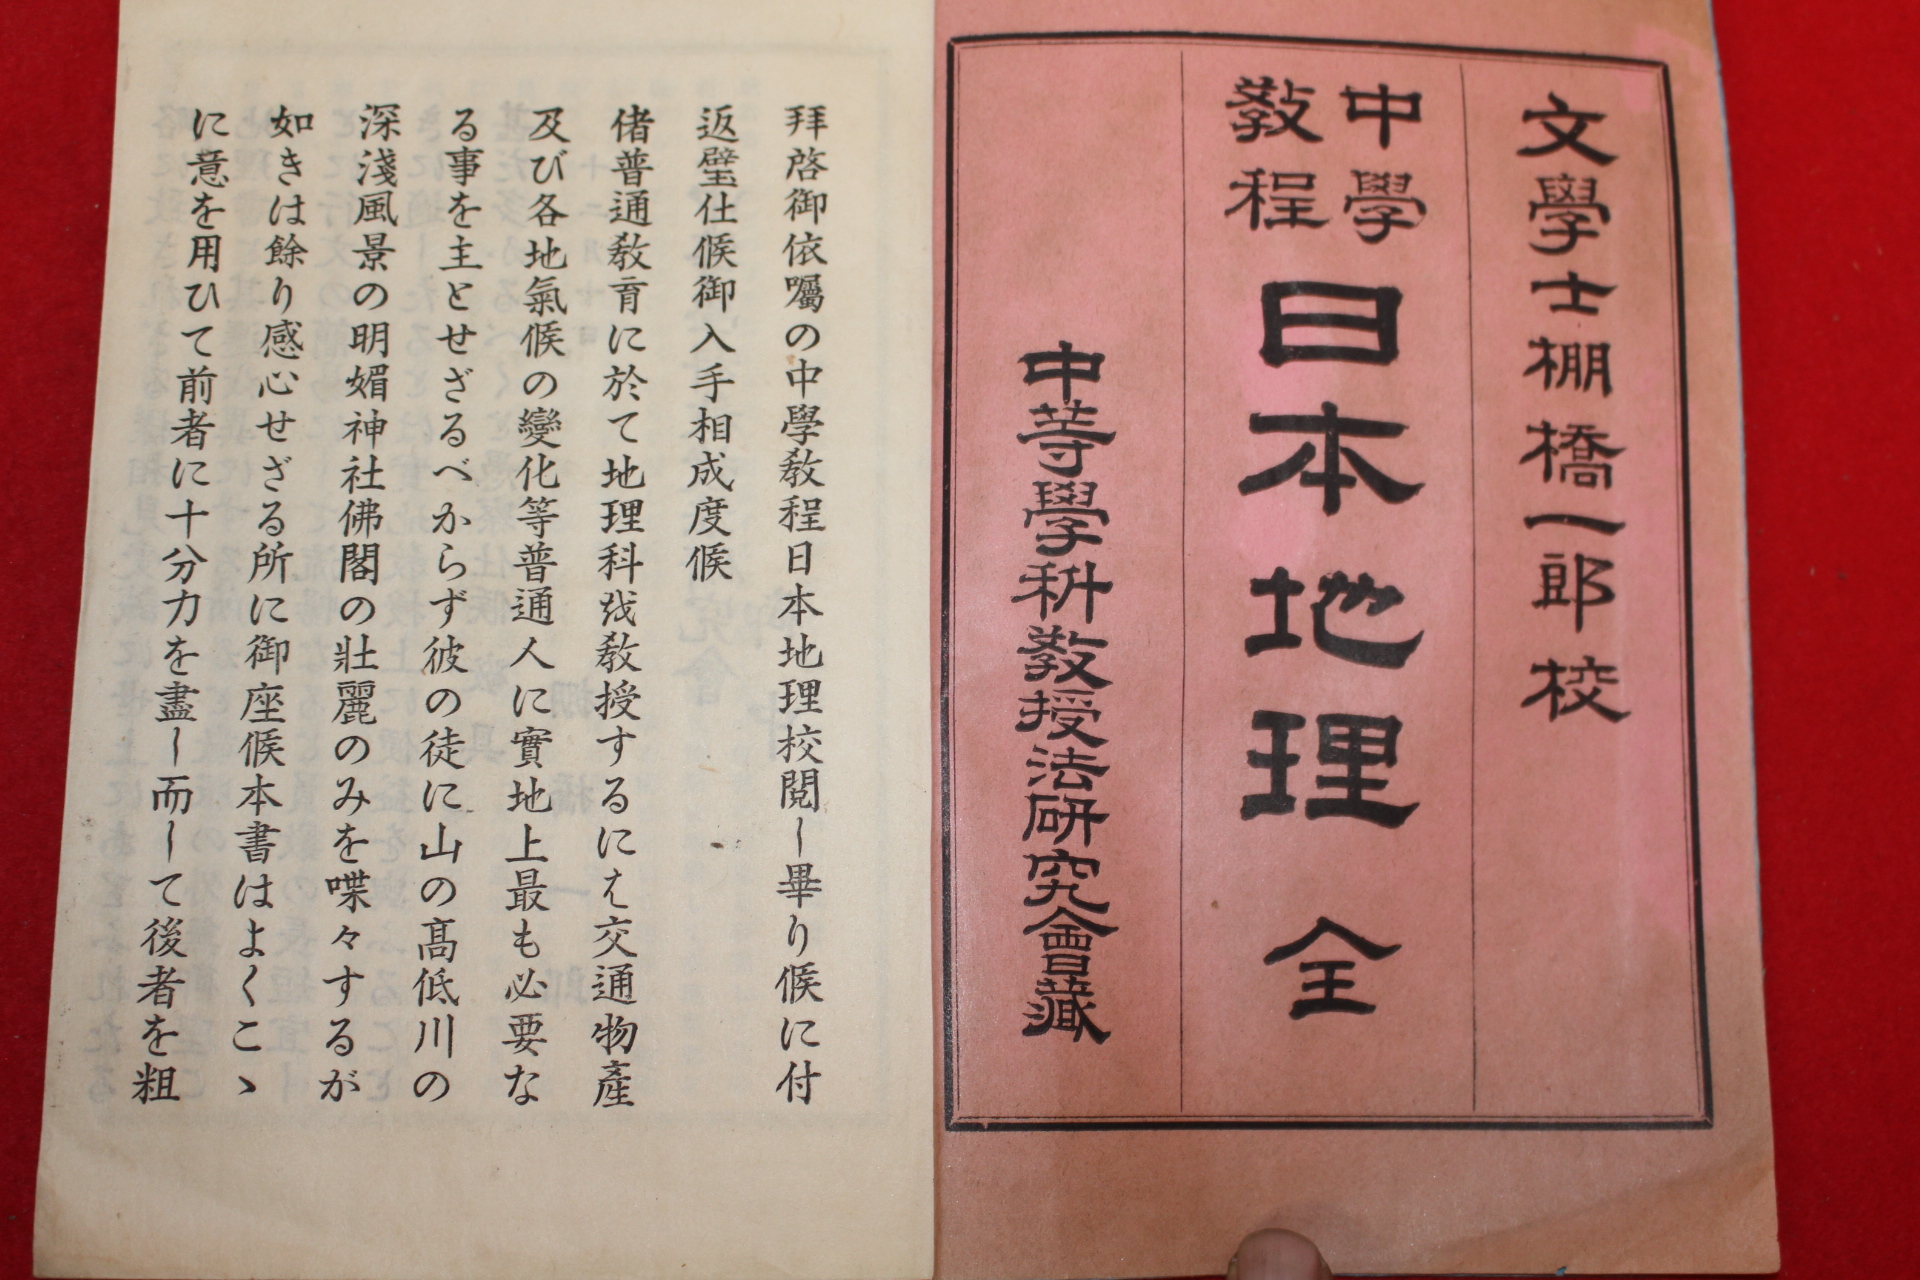 文學士棚橋一郎校
中學教程日本地理全
中等學科教授法研究會藏
拜啓御依囑の中學教程日本地理校閲し畢り候に付
返璧仕候御入手相成度候
偖普通教育に於て地理科を教授するには交通物產
及び各地氣候の變化等普通人に實地上最も必要な
る事を主とせざるべからず彼の徒に山の高低川の
深淺風景の明媚神社佛閣の壯麗のみを喋々するが
如きは餘り感心せざる所に御座候本書はよくこゝ
に意を用ひて前者に十分力を盡し而して後者を粗